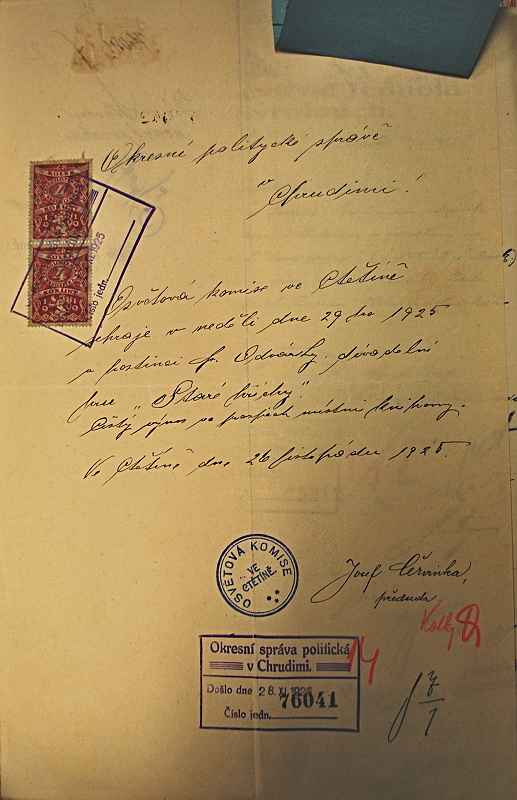 Okresní politycké správě
v Chrudimi!
KOLEK
1
KORUNY
1919
KOLEK
1
KORUNY
1919
XI. 1925
Číslo jedn.
Osvětová komise ve Ctětíně
sehraje v neděli dne 29 ho 1925
v hostinci p. Odvárky, divadelní
hru "Staré hříchy".
Čistý výnos ve prospěch místní knihovny.
Ve Ctětíně dne 26 listopadu 1925.
OSVĚTOVÁ KOMISE
VE
CTĚTÍNĚ.
Josef Červinka,
předseda
Okresní správa politická
v Chrudimi.
Došlo dne 28. XI. 1925
76041
Číslo jedn.
14